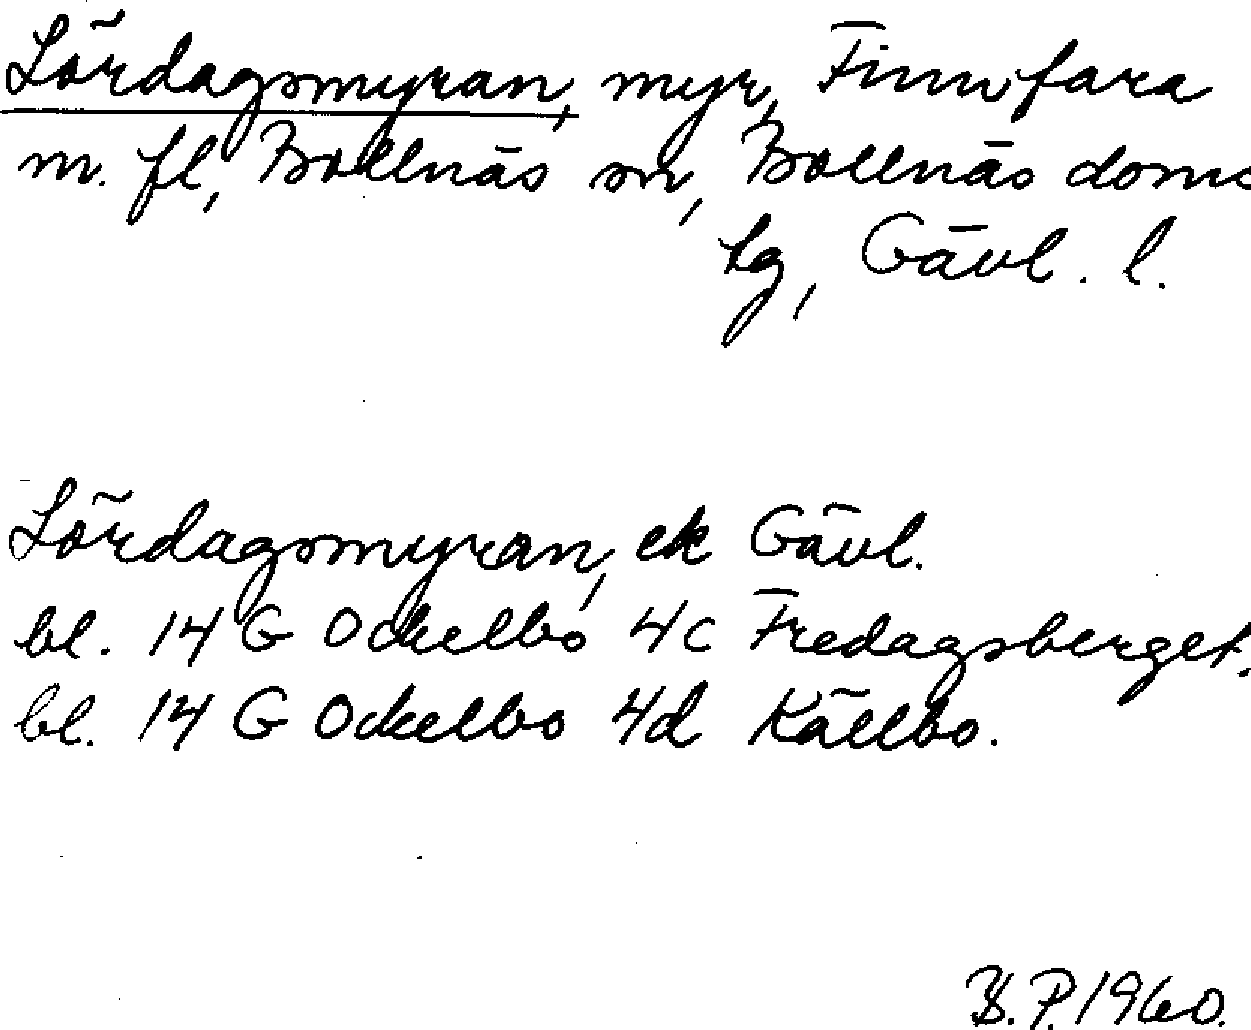 Lördagsmyran, myr, Finnfara
m. fl, Bollnäs sn, Bollnäs doms
tg, Gävl. l.
Lördagsmyran, ek Gävl.
bl. 14 G Ockelbo 4c Fredagsberget.
bl. 14 G Ockelbo 4d Källbo.
B. P. 1960.